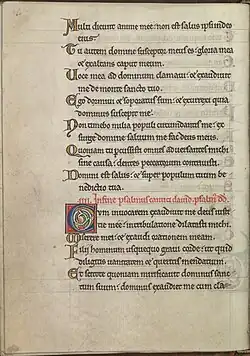 Multi dicunt anime mee: non est salus ipsi in deo
eius.
Tu autem domine susceptor meus es: gloria mea
et exaltans caput meum.
Voce mea ad dominum clamaui: et exaudiuit
me de monte sancto suo.
Ego dormiui et soporatus sum: et exurrexi quia
dominus suscepit me.
Non timebo milia populi circumdantis me: ex
surge domine saluum me fac deus meus.
Quoniam tu percussisti omnes aduersantes michi
sine causa: dentes peccatorum contriuisti.
Domini est salus: et super populum tuum be
nedictio tua.
In finem psalmus cantici dauid.
Cum inuocarem exaudiuit me deus iusti
tie mee: in tribulatione dilatasti michi.
Miserere mei: et exaudi orationem meam.
Filii hominum usquequo graui corde: ut quid
diligitis uanitatem et queritis mendacium.
Et scitote quoniam mirificauit dominus sanc
tum suum: dominus exaudiet me cum cla